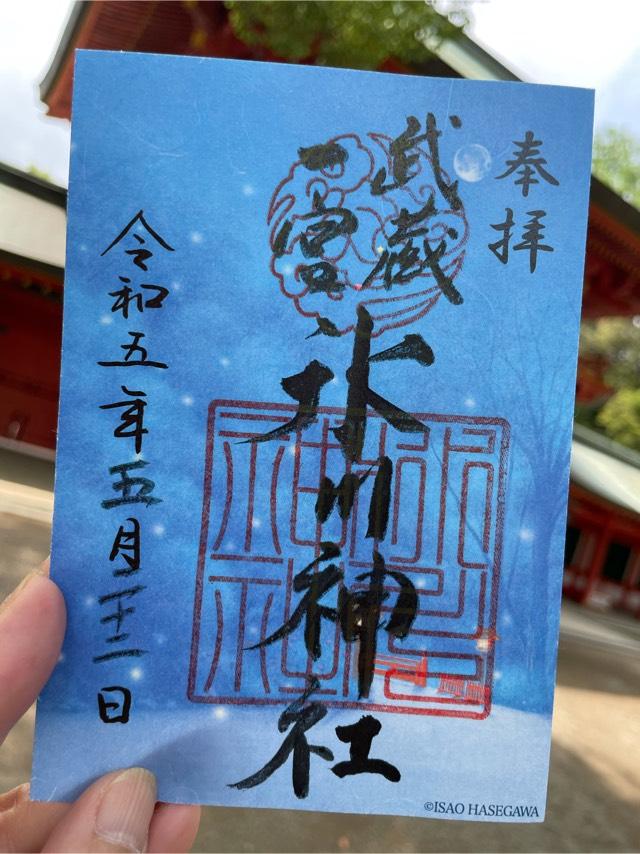 奉拝
武蔵
一宮
氷川神社
令和五年五月二十二日
氷川
神社
©ISAO HASEGAWA